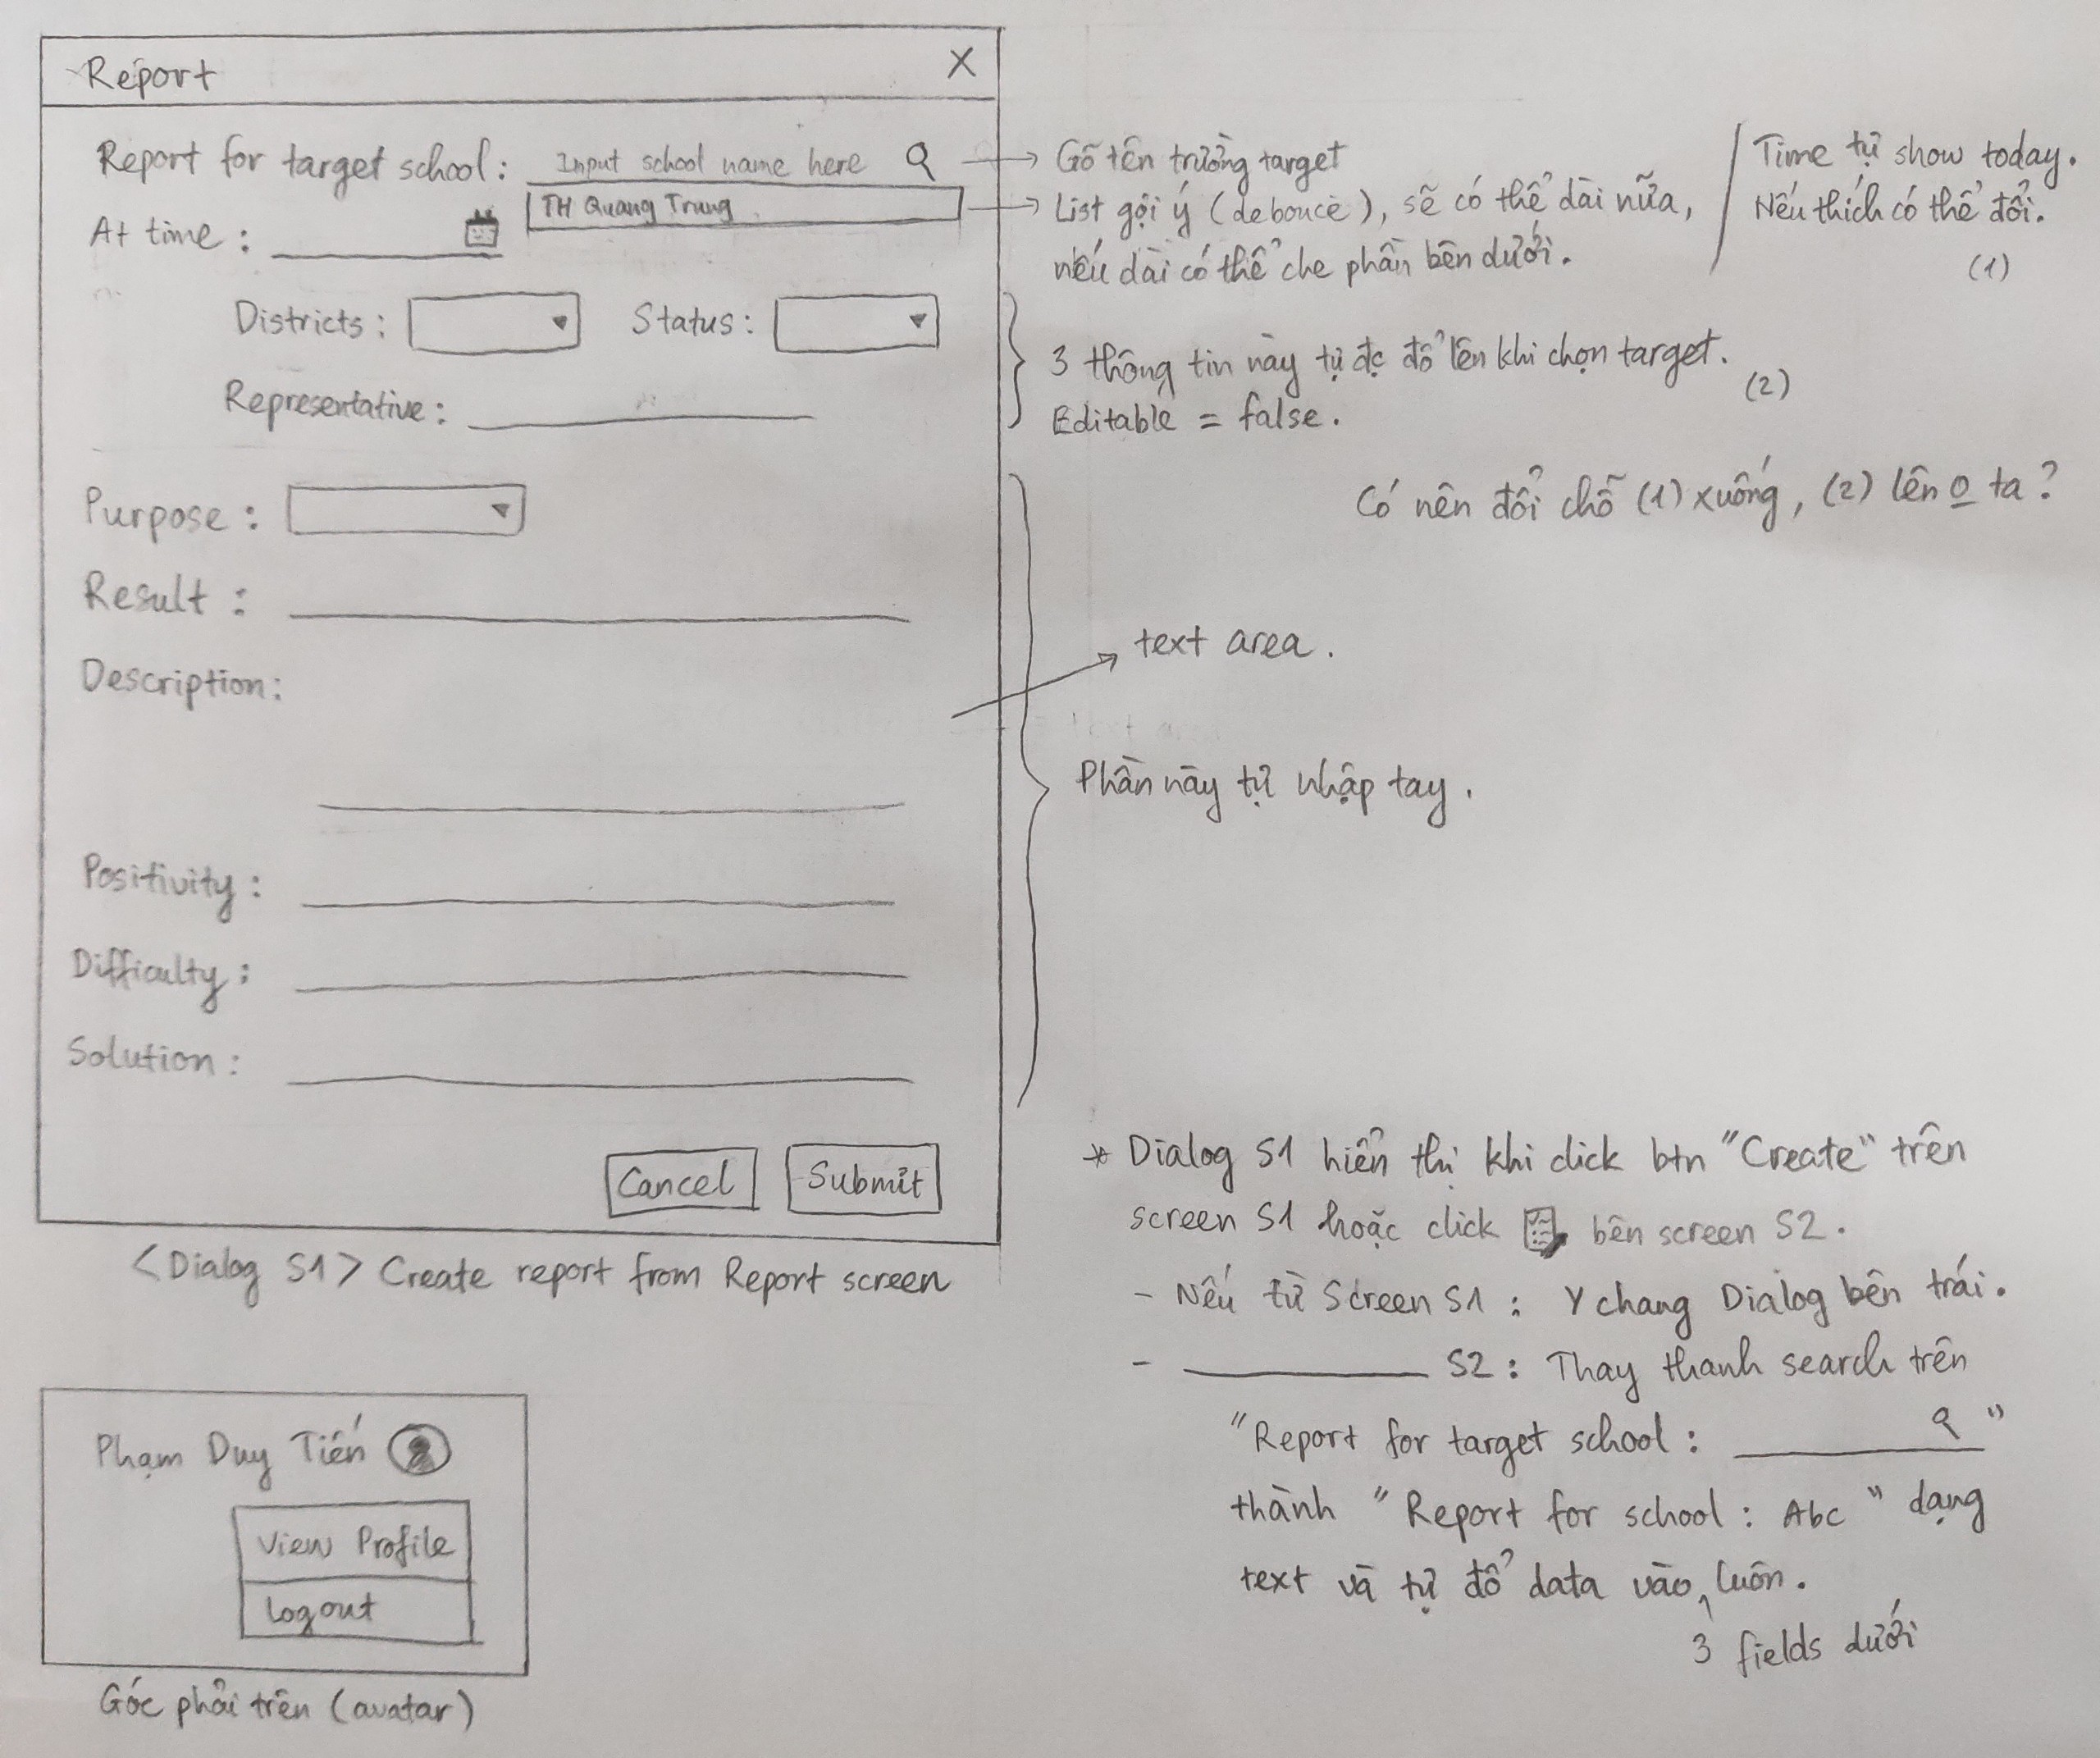 Report X
Report for target school: Input school name here
TH Quang Trung
At time:
Districts: Status:
Representative:
Purpose:
Result:
Description:
Positivity:
Difficulty:
Solution:
Cancel Submit
<Dialog S1> Create report from Report screen
→ Gõ tên trường target
→ List gợi ý (debounce), sẽ có thể dài nữa,
nếu dài có thể che phần bên dưới.
Time tự show today.
Nếu thích có thể đổi.
(1)
3 thông tin này tự đc đổ lên khi chọn target.
(2)
Editable = false.
Có nên đổi chỗ (1) xuống, (2) lên o ta?
text area.
Phần này tự nhập tay.
* Dialog S1 hiển thị khi click btn "Create" trên
screen S1 hoặc click bên screen S2.
- Nếu từ Screen S1: Y chang Dialog bên trái.
- S2: Thay thanh search trên
"Report for target school: "
thành "Report for school: Abc" dạng
text và tự đổ data vào luôn.
3 fields dưới
Phạm Duy Tiến
View Profile
Logout
Góc phải trên (avatar)